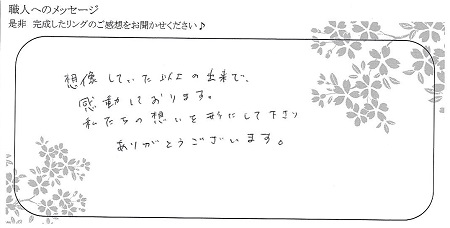 職人へのメッセージ
是非 完成したリングのご感想をお聞かせください♪
想像していた以上の出来で、
感動しております。
私たちの想いを形にして下さり
ありがとうございます。